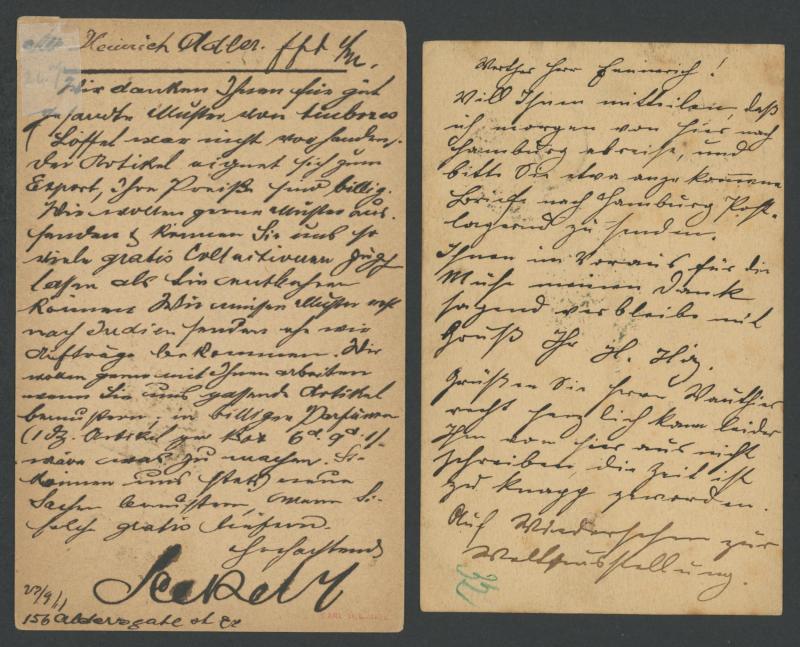 Heinrich Adler. ffrt a/M.
Wir danken Ihnen für gut
gesandte Muster, von
Löffel war nicht vorhanden.
Der Artikel eignet sich zum
Export, Ihre Preiße sind billig.
Wir wollen gerne Muster aus-
senden & können Sie uns so
viele gratis Collectionen zugehen
lassen als Sie entbehren
können. Wir müssen Muster erst
nach Indien senden ehe wir
Aufträge bekommen. Wir
wollen gerne mit Ihnen arbeiten
wenn Sie uns passende Artikel
bemustern, in billigen Parfümen
(1 dz. Artikel per Box 6d. 9d. 1/)
wäre was zu machen. Sie
können uns stets neue
Sachen bemustern, wenn Sie
solche gratis liefern.
Hochachtend
23/9/11
156 Aldersgate St
Werther Herr Emmerich!
Will Ihnen mitteilen, daß
ich morgen von hier nach
Hamburg abreise, und
bitte Sie etwa angekommene
Briefe nach Hamburg Post-
lagernd zu senden.
Ihnen im Voraus für die
Mühe meinen Dank
sagend verbleibe mit
Gruß Ihr H.
Grüßen Sie Herrn Vauthier
recht herzlich kann leider
Ihm von hier aus nicht
schreiben, die Zeit ist
zu knapp geworden.
Auf Wiedersehen zur
Weltausstellung.